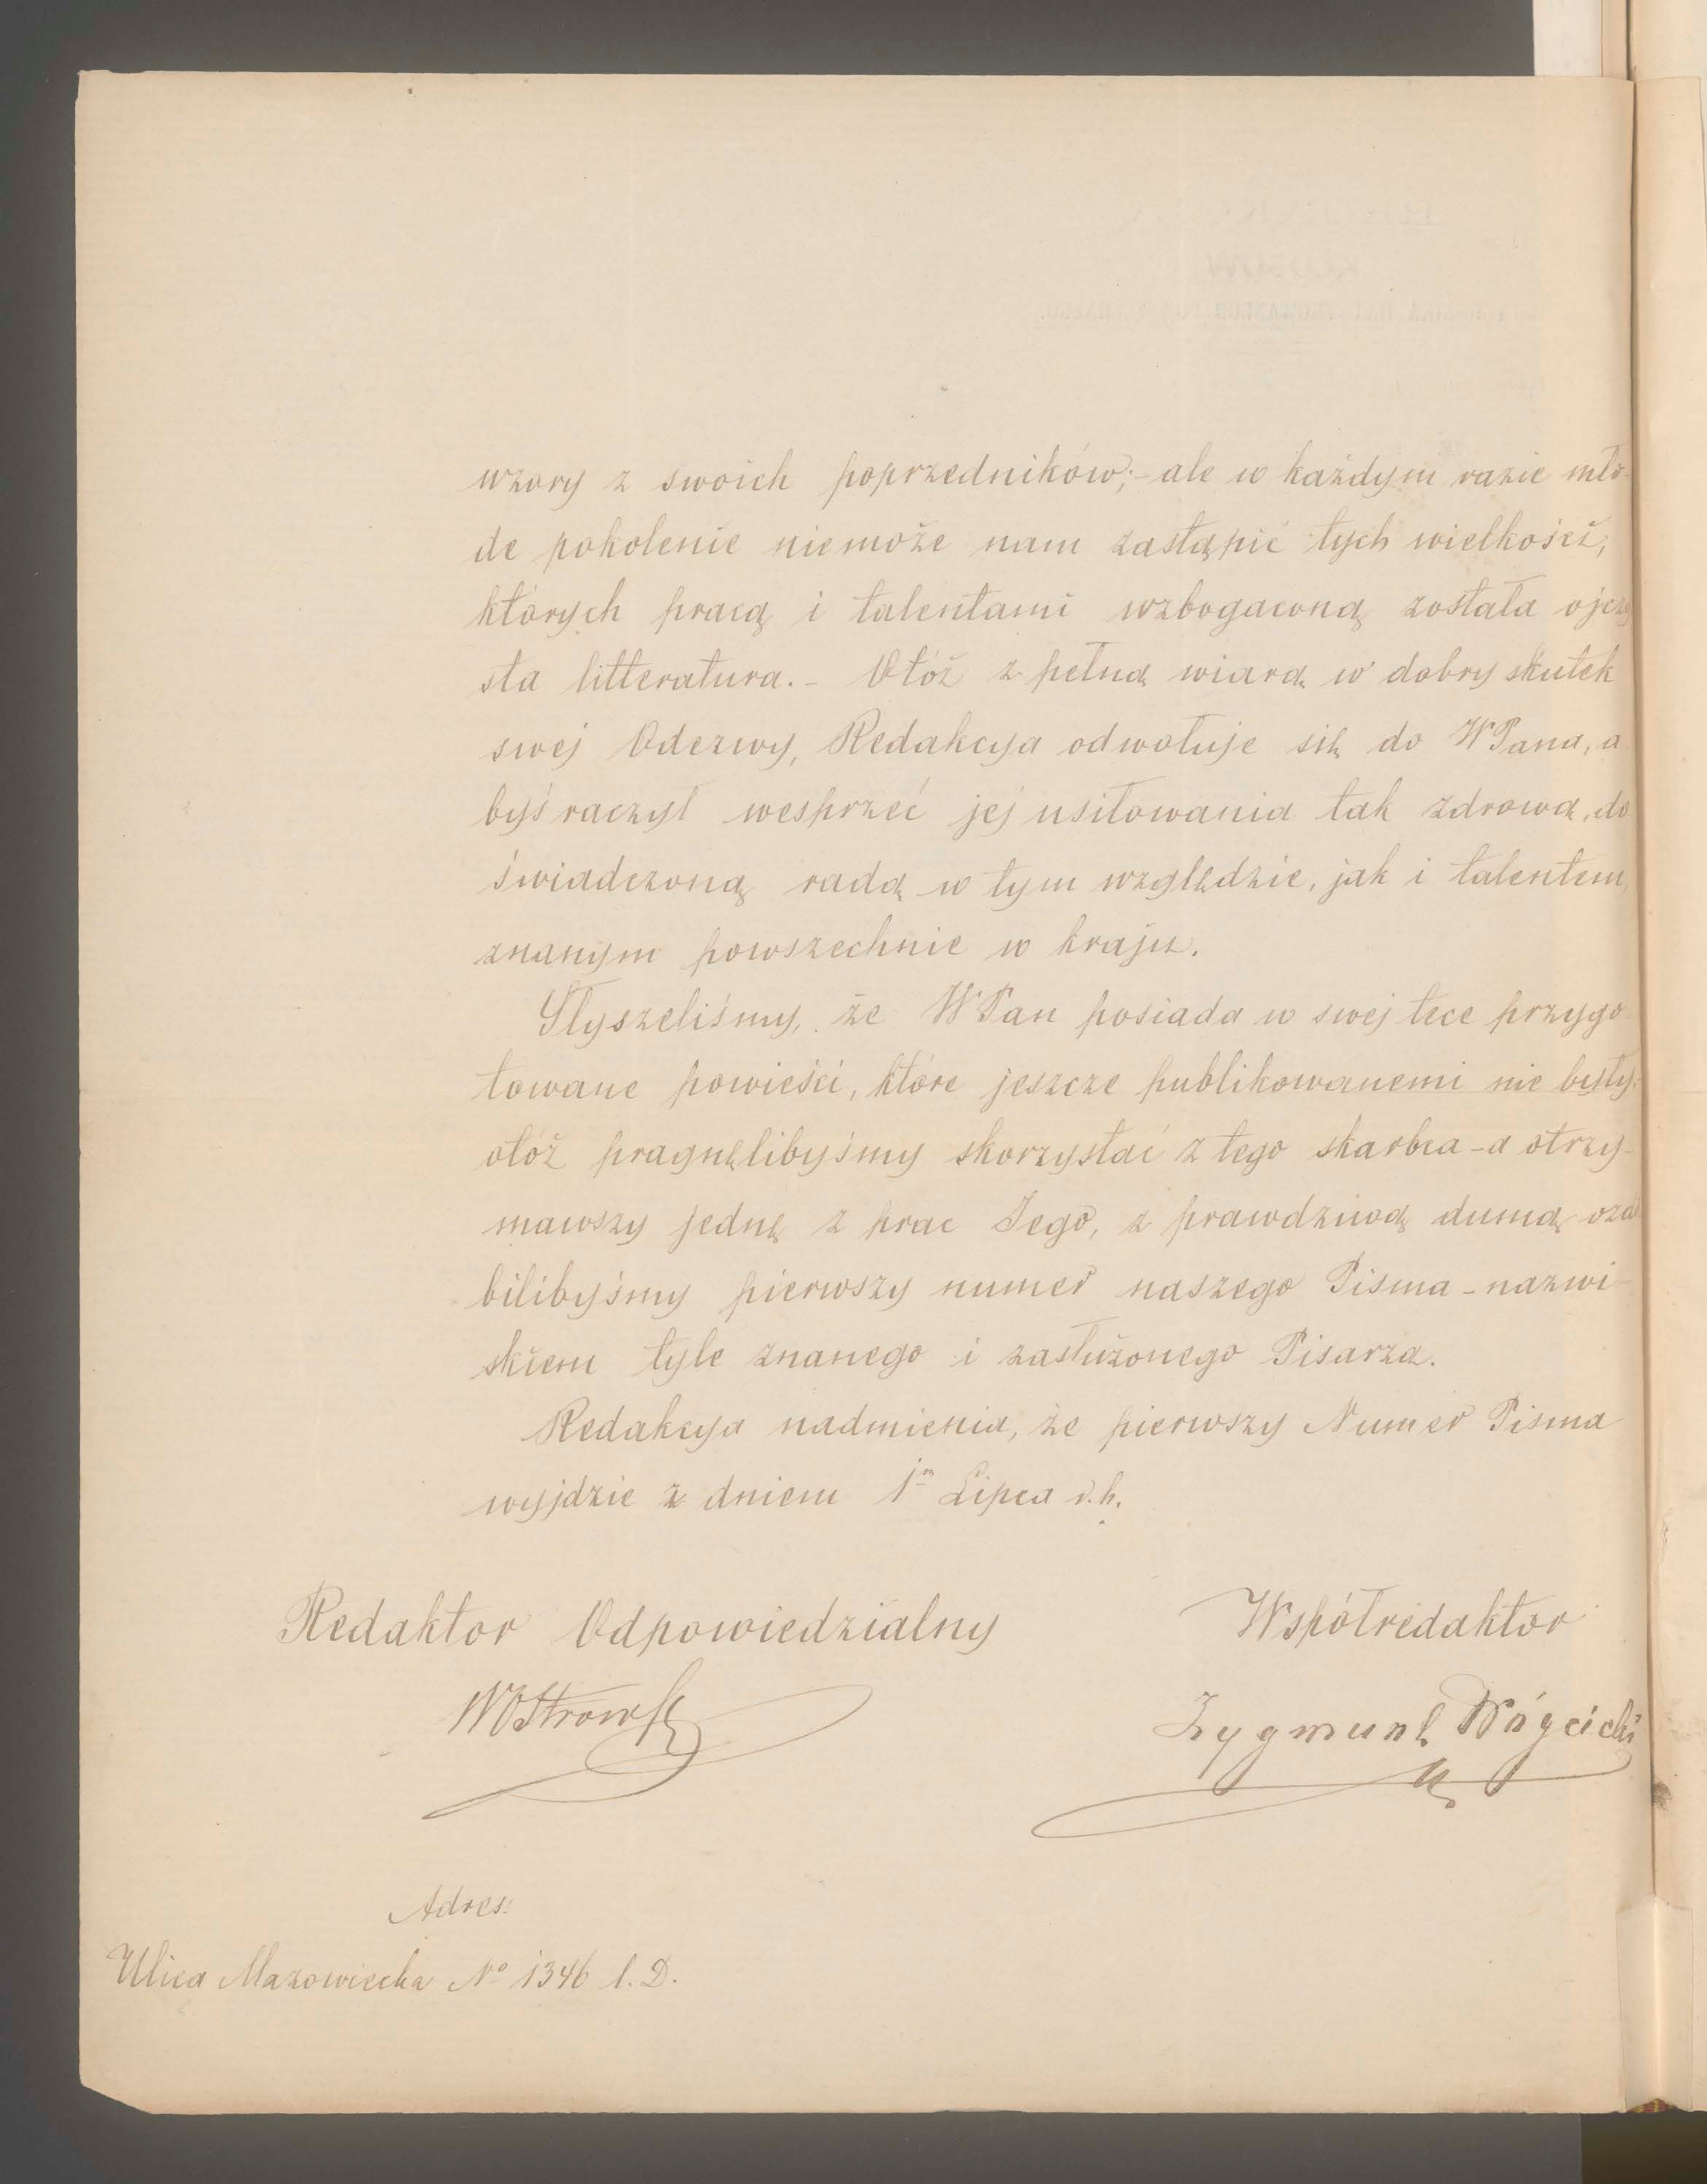 wzory z swoich poprzedników;- ale w każdym razie mło-
de pokolenie niemoże nam zastąpić tych wielkości,
których pracą i talentami wzbogaconą została ojczy
sta litteratura.- Otóż z pełną wiarą w dobry skutek
swej Odezwy, Redakcya odwołuje się do WPana, a
byś raczył wesprzeć jej usiłowania tak zdrową, do
świadczoną radą w tym względzie, jak i talentem,
znanym powszechnie w kraju.
Słyszeliśmy, że WPan posiada w swej tece przygo
towane powieści, które jeszcze publikowanemi nie były;
otóż pragnęlibyśmy skorzystać z tego skarbca - a otrzy-
mawszy jedną z prac Jego, z prawdziwą dumą ozdo
bilibyśmy pierwszy numer naszego Pisma - nazwi-
skiem tyle znanego i zasłużonego Pisarza.
Redakcya nadmienia, że pierwszy Numer Pisma
wyjdzie z dniem 1m Lipca r.b.
Redaktor Odpowiedzialny Współredaktor
WOstrowsk Zygmunt Wóycicki
Adres:
Ulica Mazowiecka No 1346 l. D.